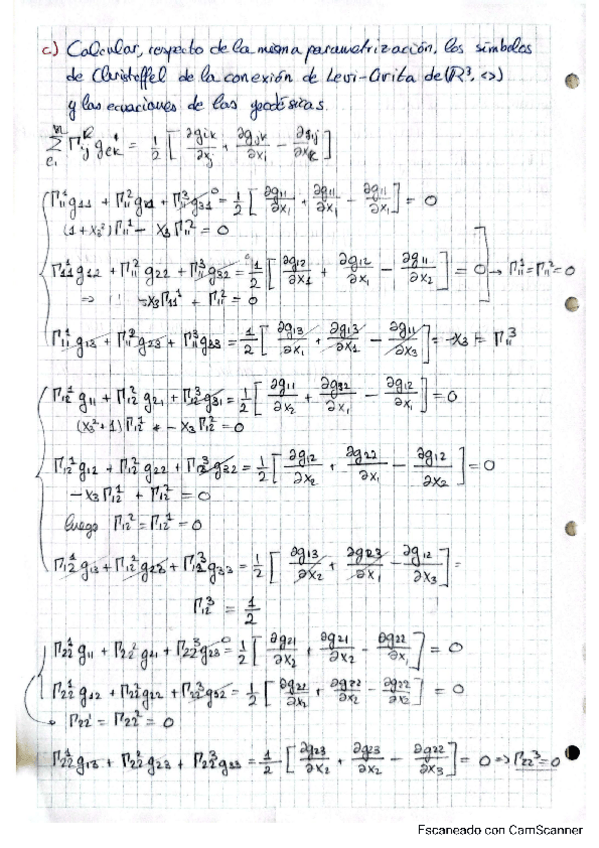 c) Calcular, respecto de la misma parametrización, los símbolos
de Christoffel de la conexión de Levi-Civita de (R³, <>)
y las ecuaciones de las geodésicas.
Γᵢⱼᵏ gₑₖ = 1/2 [ ∂gᵢₖ/∂xⱼ + ∂gⱼₖ/∂xᵢ - ∂gᵢⱼ/∂xₖ ]
Γ₁₁¹ g₁₁ + Γ₁₁² g₂₁ + Γ₁₁³ g₃₁ = 1/2 [ ∂g₁₁/∂x₁ + ∂g₁₁/∂x₁ - ∂g₁₁/∂x₁ ] = 0
(1+x₃²) Γ₁₁¹ - x₃ Γ₁₁² = 0
Γ₁₁¹ g₁₂ + Γ₁₁² g₂₂ + Γ₁₁³ g₃₂ = 1/2 [ ∂g₁₂/∂x₁ + ∂g₁₂/∂x₁ - ∂g₁₁/∂x₂ ] = 0 → Γ₁₁¹ = Γ₁₁² = 0
⇒ -x₃ Γ₁₁¹ + Γ₁₁² = 0
Γ₁₁¹ g₁₃ + Γ₁₁² g₂₃ + Γ₁₁³ g₃₃ = 1/2 [ ∂g₁₃/∂x₁ + ∂g₁₃/∂x₁ - ∂g₁₁/∂x₃ ] = -x₃ = Γ₁₁³
Γ₁₂¹ g₁₁ + Γ₁₂² g₂₁ + Γ₁₂³ g₃₁ = 1/2 [ ∂g₁₁/∂x₂ + ∂g₃₂/∂x₁ - ∂g₁₂/∂x₁ ] = 0
(x₃²+1) Γ₁₂¹ - x₃ Γ₁₂² = 0
Γ₁₂¹ g₁₂ + Γ₁₂² g₂₂ + Γ₁₂³ g₃₂ = 1/2 [ ∂g₁₂/∂x₂ + ∂g₂₂/∂x₁ - ∂g₁₂/∂x₂ ] = 0
-x₃ Γ₁₂¹ + Γ₁₂² = 0
luego Γ₁₂² = Γ₁₂¹ = 0
Γ₁₂¹ g₁₃ + Γ₁₂² g₂₃ + Γ₁₂³ g₃₃ = 1/2 [ ∂g₁₃/∂x₂ + ∂g₂₃/∂x₁ - ∂g₁₂/∂x₃ ] =
Γ₁₂³ = 1/2
Γ₂₂¹ g₁₁ + Γ₂₂² g₂₁ + Γ₂₂³ g₂₃ = 1/2 [ ∂g₂₁/∂x₂ + ∂g₂₁/∂x₂ - ∂g₂₂/∂x₁ ] = 0
Γ₂₂¹ g₁₂ + Γ₂₂² g₂₂ + Γ₂₂³ g₃₂ = 1/2 [ ∂g₂₂/∂x₂ + ∂g₂₂/∂x₂ - ∂g₂₂/∂x₂ ] = 0
Γ₂₂¹ = Γ₂₂² = 0
Γ₂₂¹ g₁₃ + Γ₂₂² g₂₃ + Γ₂₂³ g₃₃ = 1/2 [ ∂g₂₃/∂x₂ + ∂g₂₃/∂x₂ - ∂g₂₂/∂x₃ ] = 0 ⇒ Γ₂₂³ = 0
Escaneado con CamScanner